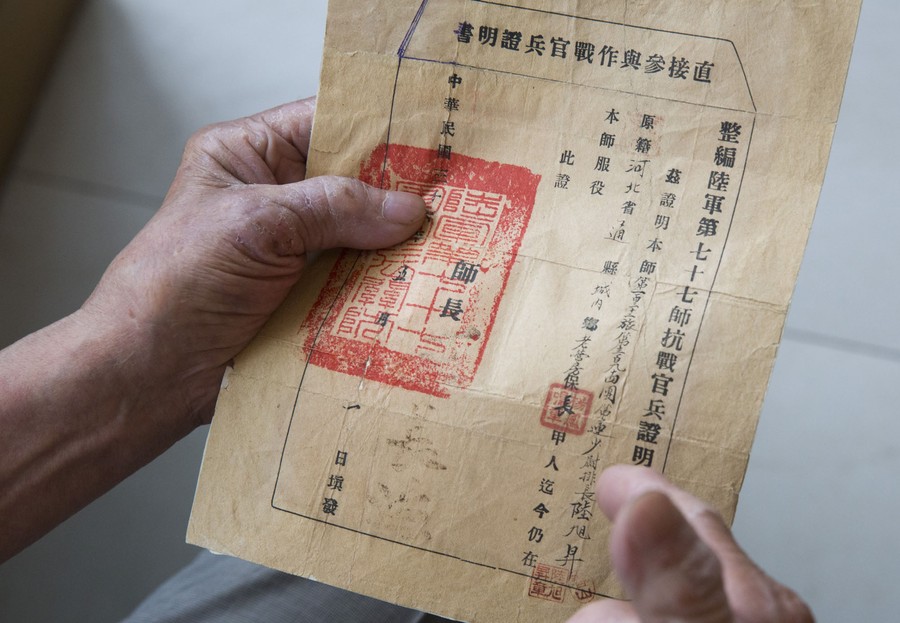 直接參與作戰官兵證明書
整編陸軍第七十七師抗戰官兵證明
茲證明本師第旅第團第連少尉排長陸旭昇
原籍河北省通縣城內鄉老營房保長甲人迄今仍在
本師服役
此證
師長
中華民國十五月一日填發